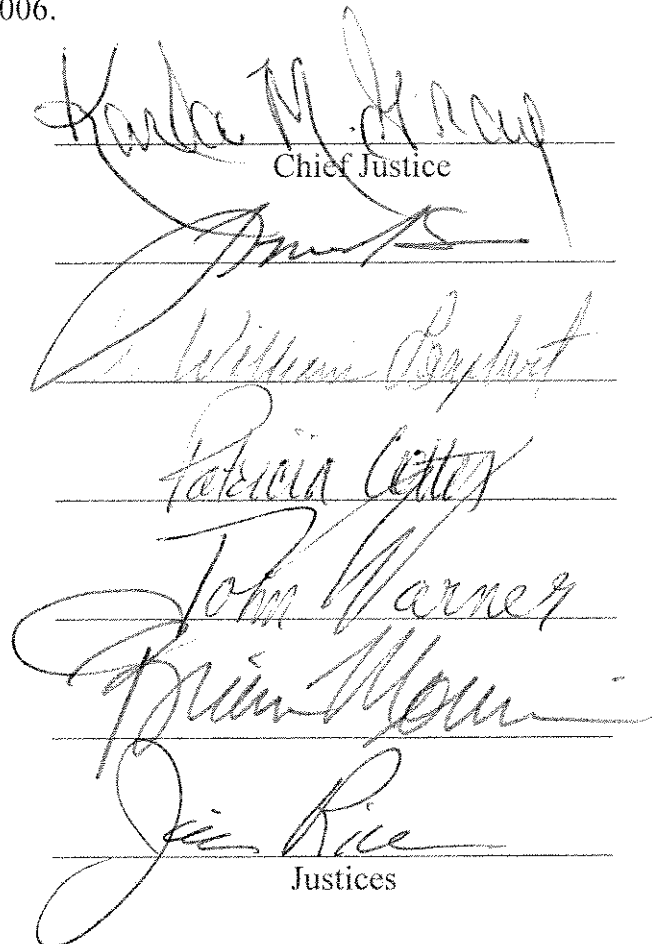 006.
Karla M. Gray
Chief Justice
W. William Leaphart
Patricia Cotter
John Warner
Brian Morris
Jim Rice
Justices